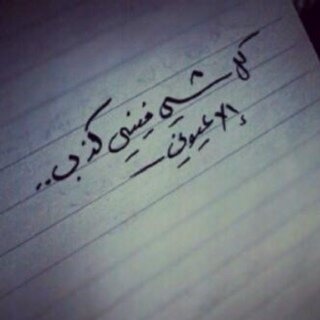 كل شي فيني كذب..
إلا عيوني